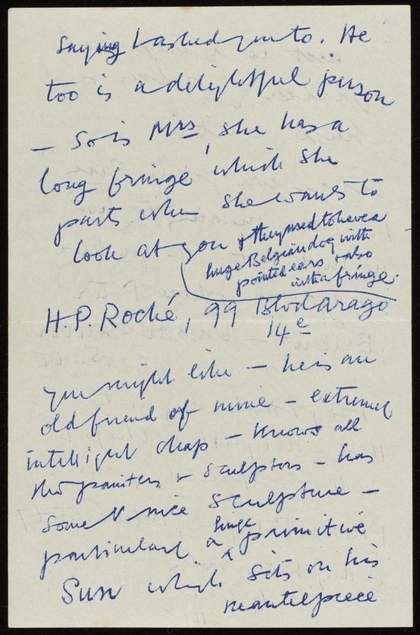 saying I asked you to. He
too is a delightful person
– so is Mrs, she has a
long fringe which she
parts when she wants to
look at you & they used to have a
huge Belgian dog with
pointed ears & also
with a fringe.
H.P. Roché, 99 Blvd Arago
14e
you might like – he is an
old friend of mine – extremely
intelligent chap – knows all
the painters & sculptors – has
some nice sculpture –
particularly a huge primitive
Sun which sits on his
mantelpiece